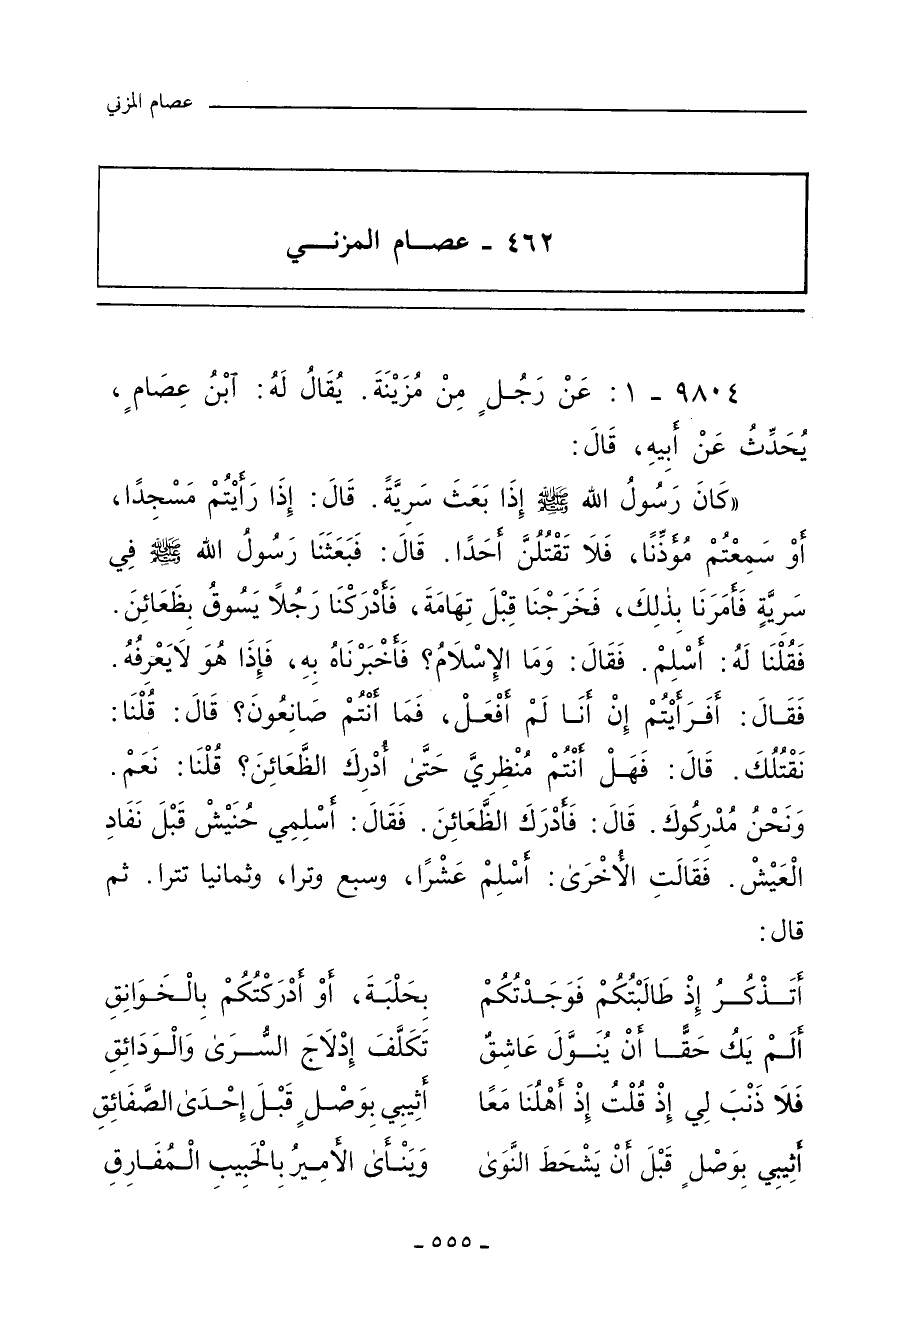 عصام المزني
٤٦٢ - عصام المزني
٩٨٠٤ - ١ : عَنْ رَجُلٍ مِنْ مُزَيْنَةَ. يُقَالُ لَهُ: آبْنُ عِصَامٍ،
يُحَدِّثُ عَنْ أَبِيهِ، قَالَ:
«كَانَ رَسُولُ الله ﷺ إِذَا بَعَثَ سَرِيَّةً. قَالَ: إِذَا رَأَيْتُمْ مَسْجِدًا،
أَوْ سَمِعْتُمْ مُؤَذِّنًا، فَلَا تَقْتُلُنَّ أَحَدًا. قَالَ: فَبَعَثَنَا رَسُولُ الله ﷺ فِي
سَرِيَّةٍ فَأَمَرَنَا بِذٰلِكَ، فَخَرَجْنَا قِبْلَ تِهَامَةَ، فَأَدْرَكْنَا رَجُلاً يَسُوقُ بِظَعَائِنَ.
فَقُلْنَا لَهُ: أَسْلِمْ. فَقَالَ: وَمَا الإِسْلَامُ؟ فَأَخْبَرْنَاهُ بِهِ، فَإِذَا هُوَ لَايَعْرِفُهُ.
فَقَالَ: أَفَرَأَيْتُمْ إِنْ أَنَا لَمْ أَفْعَلْ، فَمَا أَنْتُمْ صَانِعُونَ؟ قَالَ: قُلْنَا:
نَقْتُلُكَ. قَالَ: فَهَلْ أَنْتُمْ مُنْظِرِيَّ حَتَّىٰ أُدْرِكَ الظَّعَائِنَ؟ قُلْنَا: نَعَمْ.
وَنَحْنُ مُدْرِكُوكَ. قَالَ: فَأَدْرَكَ الظَّعَائِنَ. فَقَالَ: أَسْلِمِي حُنَيْشْ قَبْلَ نَفَادِ
الْعَيْشْ. فَقَالَتِ الأُخْرَىٰ: أَسْلِمْ عَشْرًا، وسبع وترا، وثمانيا تترا. ثم
قال:
أَتَذْكُرُ إِذْ طَالَبْتُكُمْ فَوَجَدْتُكُمْ بِحَلْبَةَ، أَوْ أَدْرَكْتُكُمْ بِالْخَوَانِقِ
أَلَمْ يَكُ حَقًّا أَنْ يُنَوَّلَ عَاشِقٌ تَكَلَّفَ إِدْلَاجَ السُّرَىٰ وَالْوَدَائِقِ
فَلَا ذَنْبَ لِي إِذْ قُلْتُ إِذْ أَهْلُنَا مَعًا أَثِيبِي بِوَصْلٍ قَبْلَ إِحْدَىٰ الصَّفَائِقِ
أَثِيبِي بِوَصْلٍ قَبْلَ أَنْ يَشْحَطَ النَّوَىٰ وَيَنْأَىٰ الأَمِيرُ بِالْحَبِيبِ الْمُفَارِقِ
- ٥٥٥ -